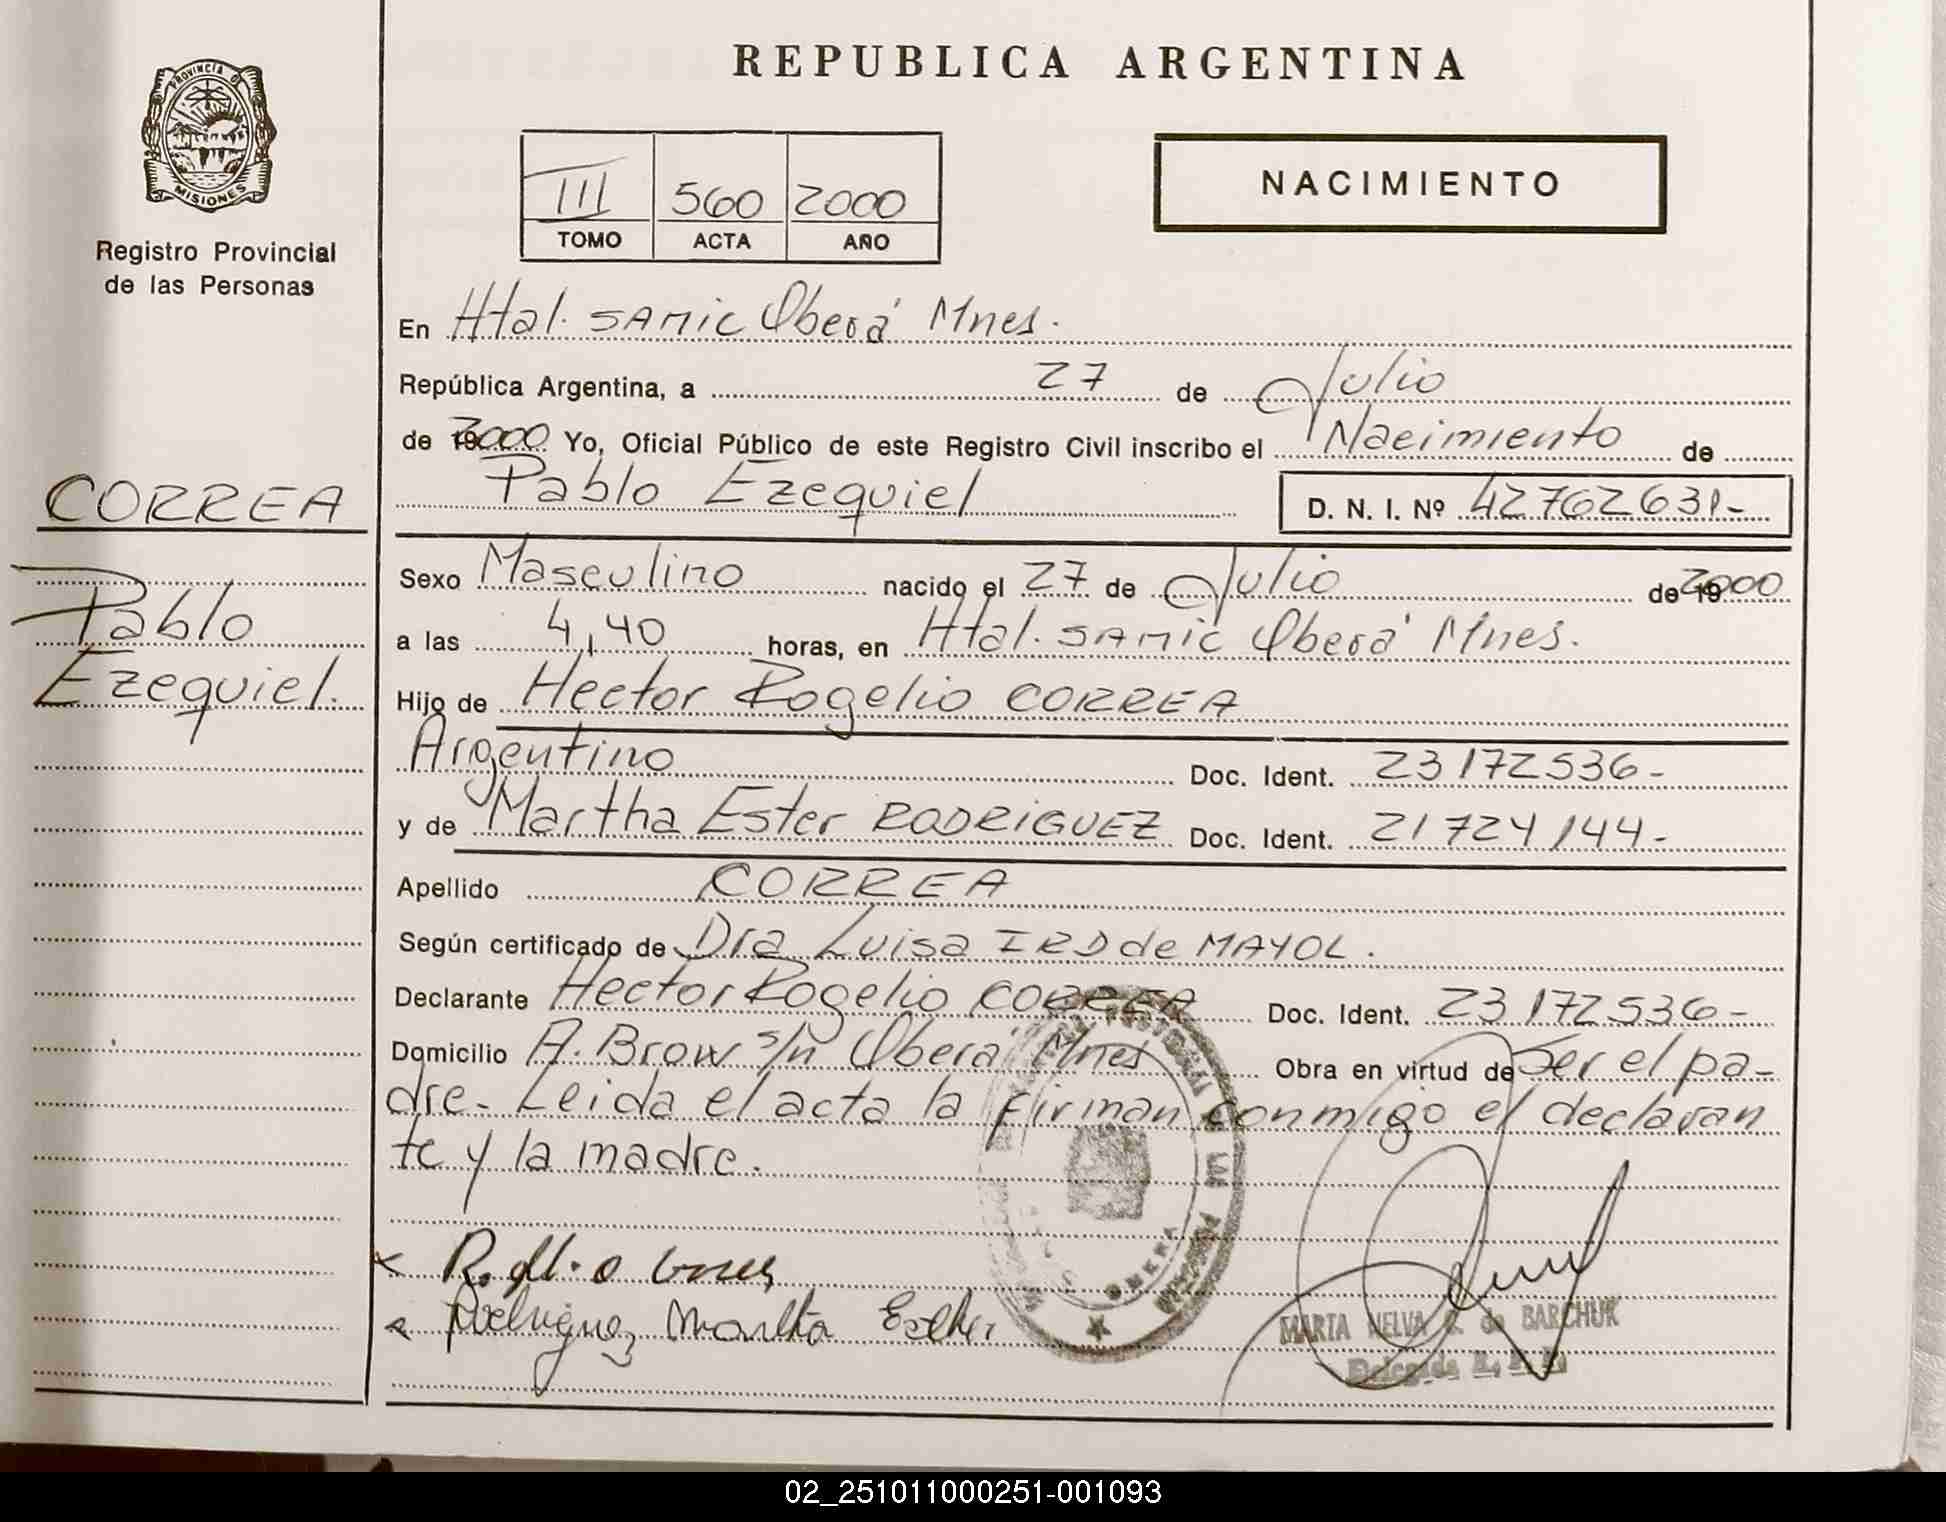 REPUBLICA ARGENTINA
PROVINCIA D
MISIONES
Registro Provincial
de las Personas
III 560 2000
TOMO ACTA AÑO
NACIMIENTO
En Htal. SAMIC Oberá Mnes.
República Argentina, a 27 de Julio
de 2000 Yo, Oficial Público de este Registro Civil inscribo el Nacimiento de
Pablo Ezequiel D. N. I. Nº 42762631-
CORREA
Pablo
Ezequiel.
Sexo Masculino nacido el 27 de Julio de 2000
a las 4,40 horas, en Htal. SAMIC Oberá Mnes.
Hijo de Hector Rogelio CORREA
Argentino Doc. Ident. 23172536-
y de Martha Ester RODRIGUEZ Doc. Ident. 21724144-
Apellido CORREA
Según certificado de Dra Luisa IRD de MAYOL.
Declarante Hector Rogelio CORREA Doc. Ident. 23172536-
Domicilio A. Brow s/n Oberá Mnes Obra en virtud de Ser el pa-
dre- Leida el acta la firman conmigo el declaran
te y la madre.
Rodriguez Martha Esther
MARTA NELVA G. de BARCHUK
Delegada
OBERA
02_251011000251-001093